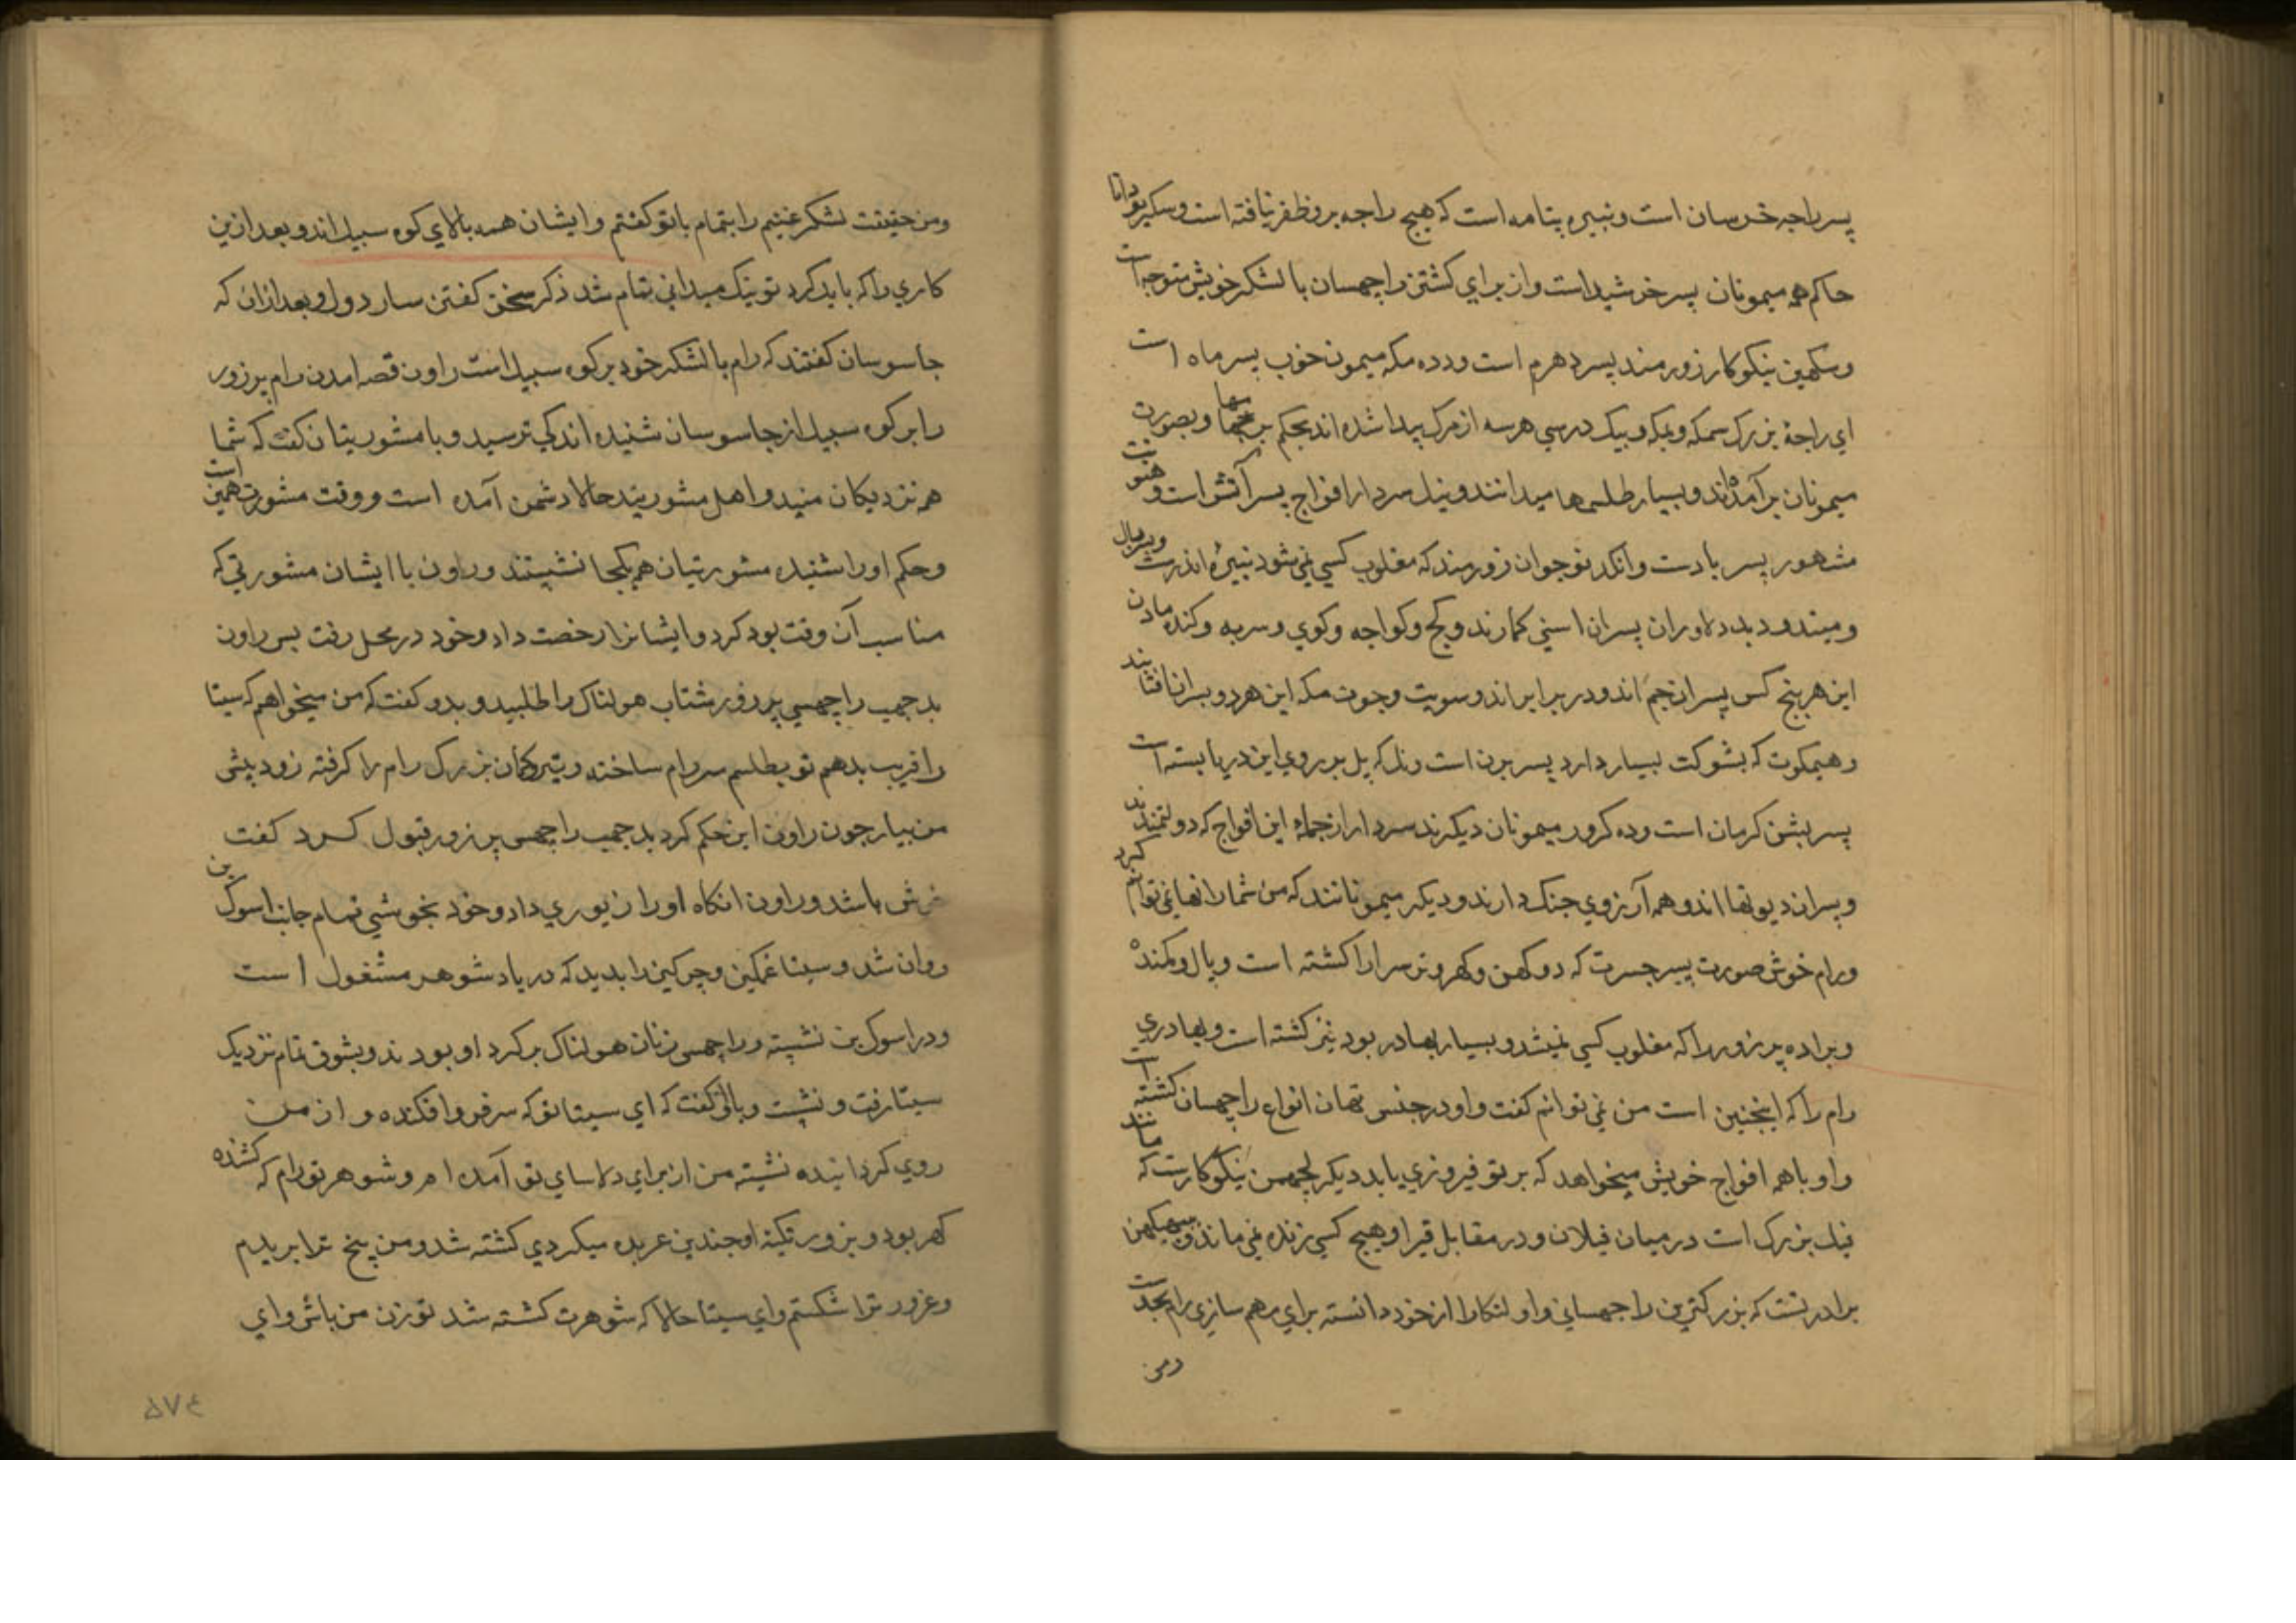 پسر راجه خرسان است و نبیره پتامه است که هیچ راجه برو ظفر نیافته است و سکیر توانا
حاکم همه میمونان پسر خرشید است و از برای کشتن راچهسان با لشکر خویش متوجه است
و سکهین نیکوکار زورمند پسر دهرم است و دده مکه میمون خوب پسر ماه است
ای راجهٔ بزرک سمکه و بیک درسی هر سه از مرک پیدا شده اند بحکم برمها و بصورت
میمونان برآمده اند و بسیار طلسم ها میدانند و نیل سردار افواج پسر آتش است و هنونت
مشهور پسر بادست و انکد نوجوان زورمند که مغلوب کسی نمی شود نبیرهٔ اندرست
و میند و دبد دلاوران پسران اسنی کمارند و کج و کواجه و کوی و سربه و کنده مادن
این هر پنج کس پسران جم اند و در برابر اند و سویت و جوت مکه این هر دو پسران افتابند
و هیمکوت که بشوکت بسیار دارد پسر برن است و نل که پل بر روی این دریا بسته است
پسر بشن کرمان است و ده کرور میمونان دیکرند سردار از جمله این افواج که دولتمندند
و پسران دیوتها اند و همه آرزوی جنک دارند و دیکر میمونانند که من شمار انها نمی توانم کرد
و رام خوش صورت پسر جسرت که دوکهن و کهر و ترسرا را کشته است و بال و کمنده
و براده پر زور را که مغلوب کسی نمیشد و بسیار بهادر بود نیز کشته است و بهادری
رام را که اینچنین است من نمی توانم کفت و او در جنس تهان انواع راچهسان کشته است
و او با همه افواج خویش میخواهد که بر تو فیروزی یابد دیکر لچهمن نیکوکارست که مانند
فیل بزرک است در میان فیلان و در مقابل تیر او هیچ کسی زنده نمی ماند و ببهیکهن
برادر تست که بزرکترین راجهسانی و او لنکا را از خود دانسته برای مهم سازی رام بجدست
ومن
ومن حقیقت لشکر غنیم را بتمام باتو کفتم و ایشان همه بالای کوه سبیل اند و بعد ازین
کاری را که باید کرد تو نیک میدانی تمام شد ذکر سخن کفتن ساردول و بعد ازان که
جاسوسان کفتند که رام با لشکر خود بر کوه سبیل است راون قصه امدن رام پر زور
را بر کوه سبیل از جاسوسان شنیده اندکی ترسید و با مشورتیان کفت که شما
هم نزدیکان منید و اهل مشورتید حالا دشمن آمده است و وقت مشورت همین است
و حکم او را شنیده مشورتیان هم یکجا نشیتند و راون با ایشان مشورتی که
مناسب آن وقت بود کرد و ایشانرا رخصت داد و خود در محل رفت پس راون
بدجهب راچهسی پر زور شتاب هولناک را طلبید و بدو کفت که من میخواهم که سیتا
را فریب بدهم تو بطلسم سر رام ساخته و تیر و کمان بزرک رام را کرفته زود پیش
من بیار چون راون این حکم کرد بدجهب راچهس پر زور قبول کرد کفت
خوش باشد و راون انکاه او را زیوری داد و خود بخوشی تمام جانب اسوک بن
روان شد و سیتا غمکین و چرکین را بدید که در یاد شوهر مشغول است
و در اسوک بن نشیته و راچهس زنان هولناک بر کرد او بودند و بشوق تمام نزدیک
سیتا رفت و نشیت و بالز کفت که ای سیتا تو که سر فرو افکنده و از من
روی کردانیده نشیته من از برای دلاسای تو آمده ام و شوهر تو رام که کشنده
کهر بود و بزور تکیه او چندین عربده میکردی کشته شد و من پیخ ترا بریدم
و غرور ترا شکستم و ای سیتا حالا که شوهرت کشته شد تو زن من باش و ای
۵۷۴